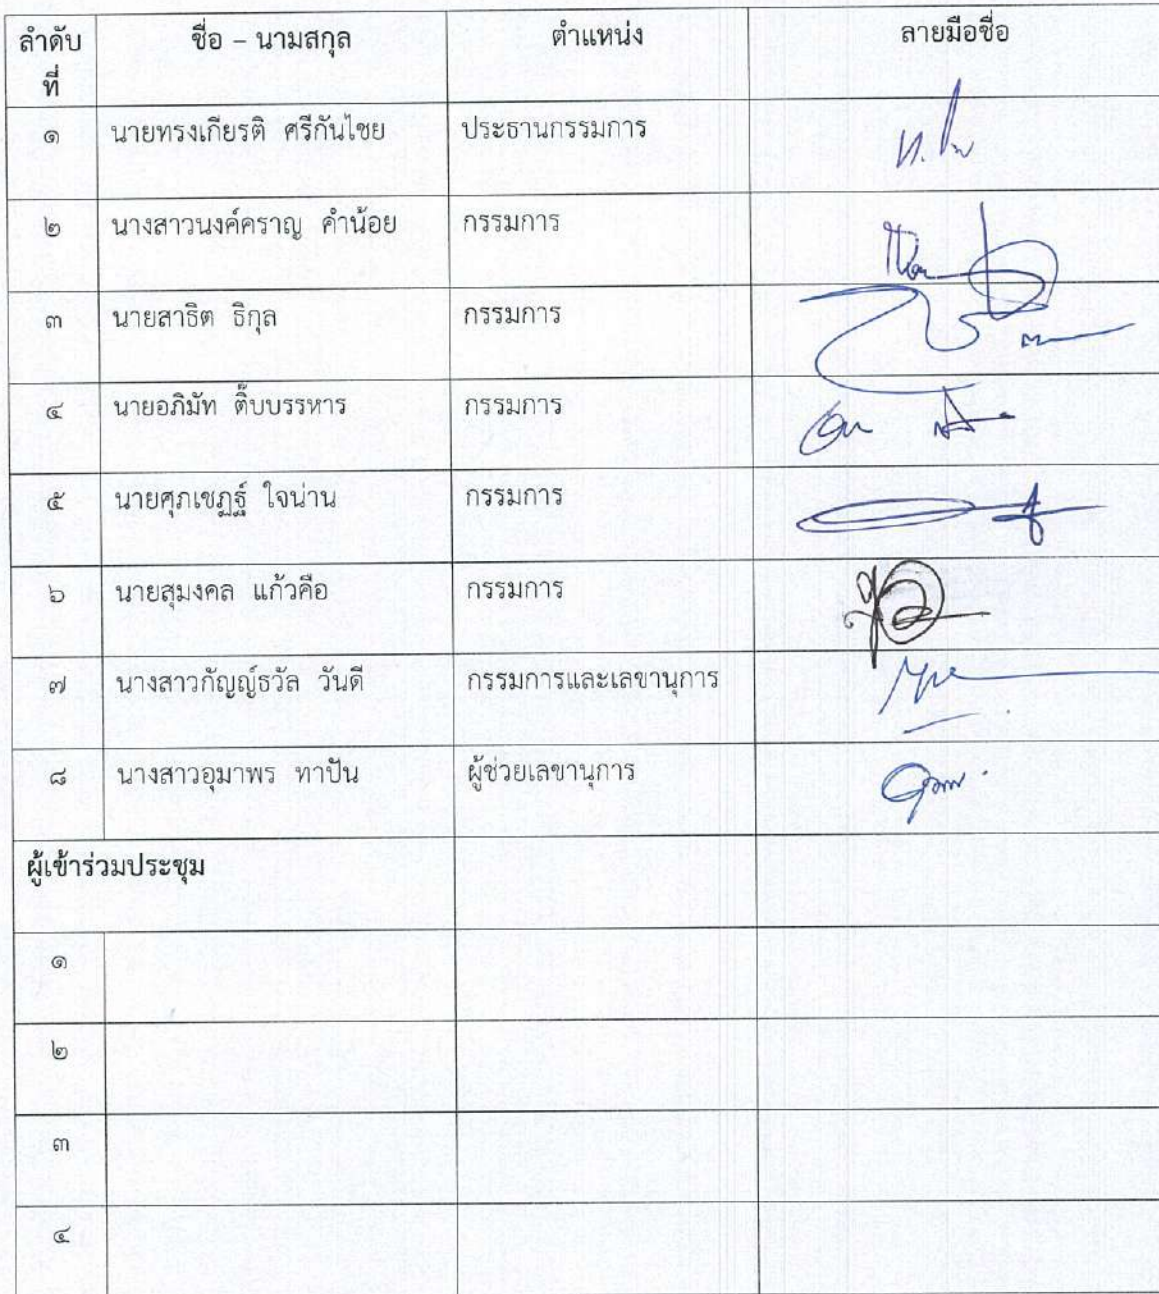 ลำดับที่ ชื่อ – นามสกุล ตำแหน่ง ลายมือชื่อ
๑ นายทรงเกียรติ ศรีกันไชย ประธานกรรมการ
๒ นางสาวนงค์คราญ คำน้อย กรรมการ
๓ นายสาธิต ธิกุล กรรมการ
๔ นายอภิมัท ติ๊บบรรหาร กรรมการ
๕ นายศุภเชฏฐ์ ใจน่าน กรรมการ
๖ นายสุมงคล แก้วคือ กรรมการ
๗ นางสาวกัญญ์ธวัล วันดี กรรมการและเลขานุการ
๘ นางสาวอุมาพร ทาปัน ผู้ช่วยเลขานุการ
ผู้เข้าร่วมประชุม
๑
๒
๓
๔